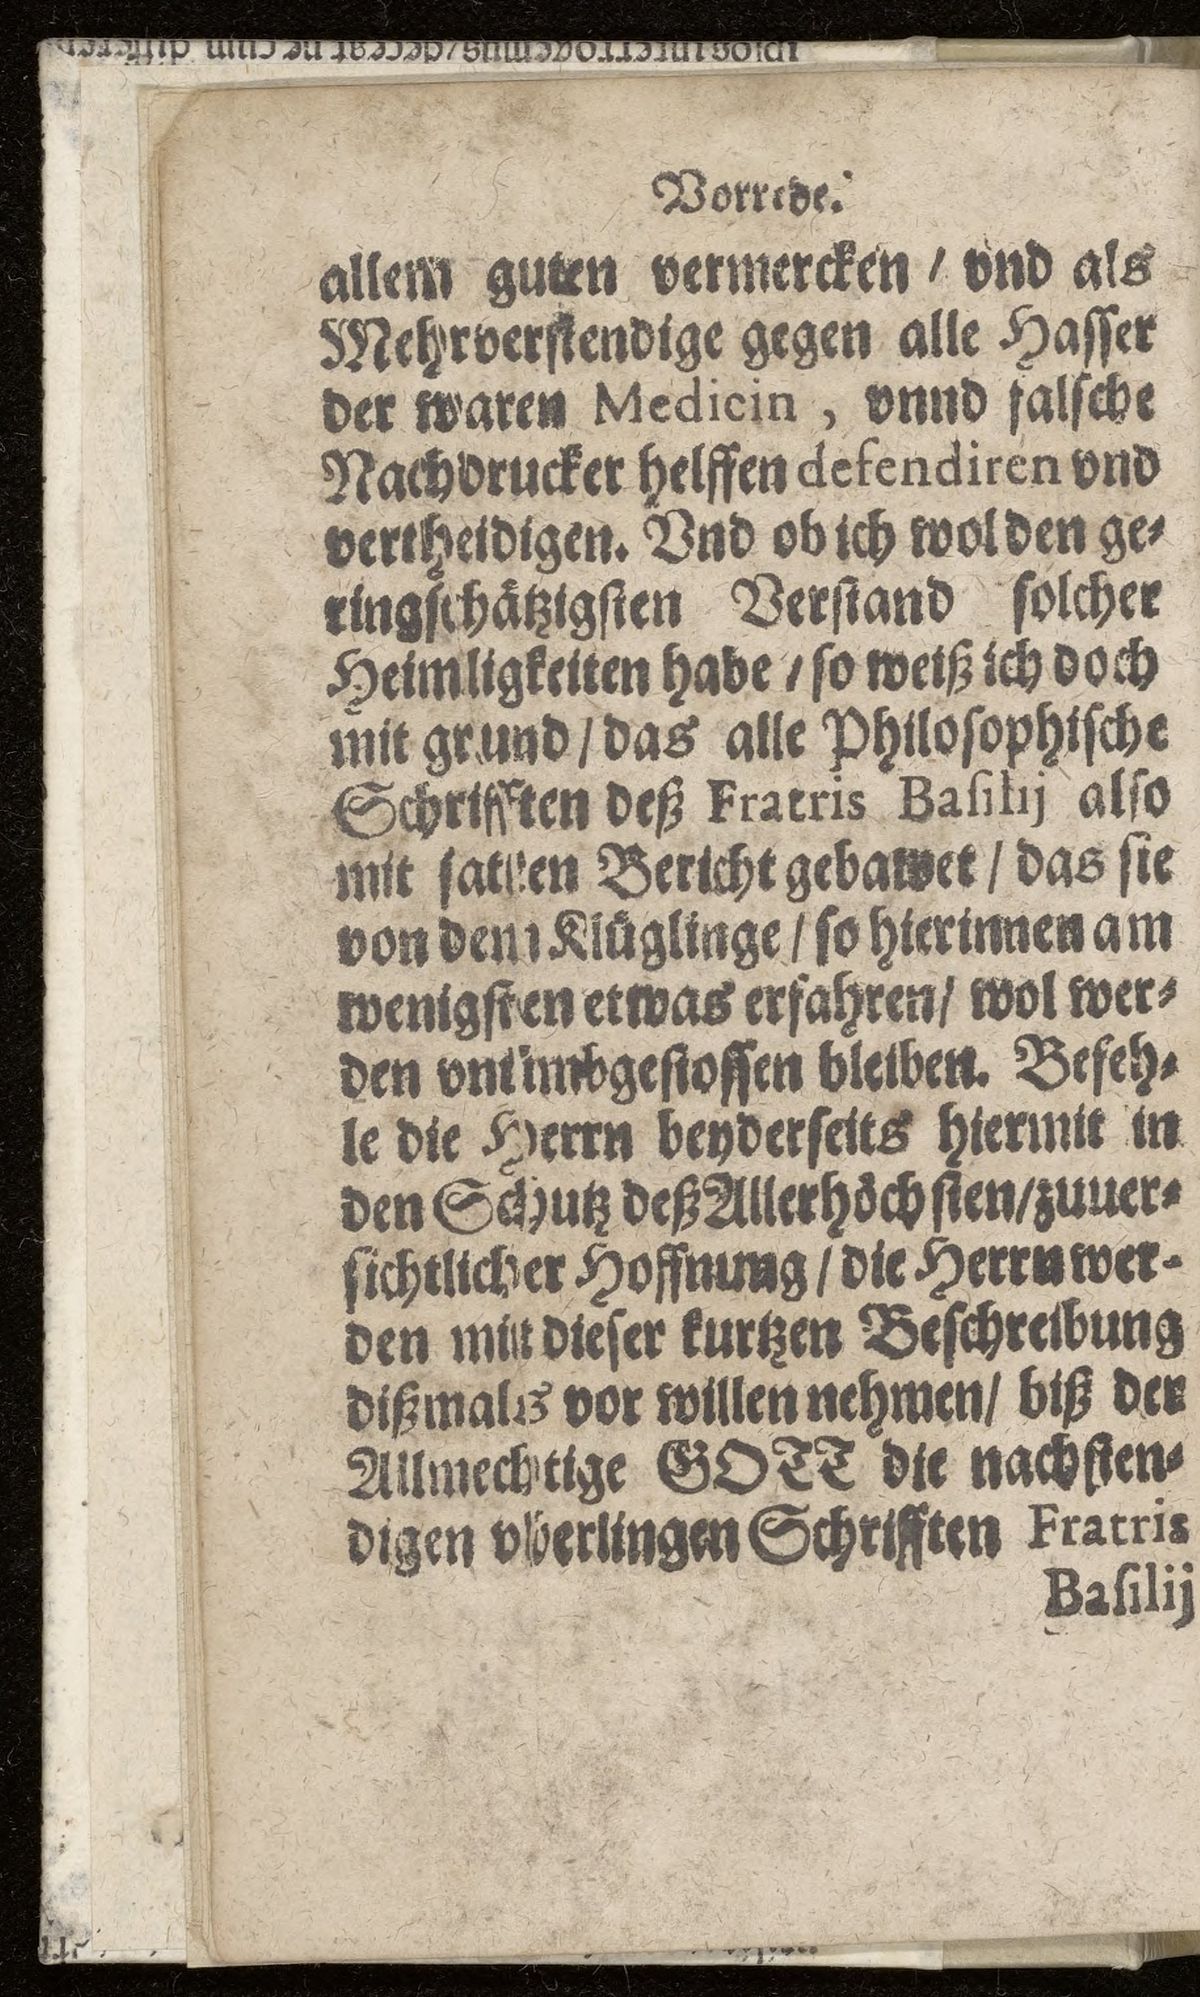 Vorrede.
allem guten vermercken / vnd als
Mehrverstendige gegen alle Hasser
der waren Medicin, vnnd falsche
Nachdrucker helffen defendiren vnd
vertheidigen. Vnd ob ich wol den ge-
ringschätzigsten Verstand solcher
Heimligkeiten habe / so weiß ich doch
mit grund / das alle Philosophische
Schrifften deß Fratris Basilij also
mit satten Bericht gebawet / das sie
von dem Klüglinge / so hierinnen am
wenigsten etwas erfahren / wol wer-
den vnümbgestossen bleiben. Befeh-
le die Herrn beyderseits hiermit in
den Schutz deß Allerhöchsten / zuuer-
sichtlicher Hoffnung / die Herrn wer-
den mit dieser kurtzen Beschreibung
dißmals vor willen nehmen / biß der
Allmechtige GOTT die nachsten-
digen vberlingen Schrifften Fratris
Basilij